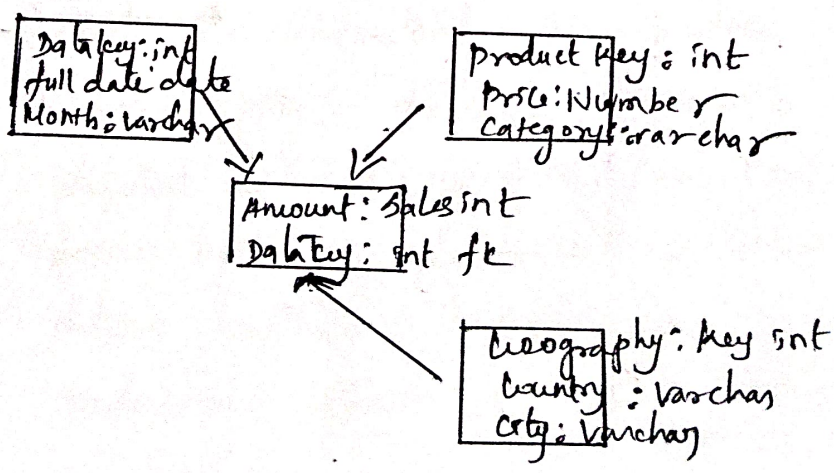 Datakey: int
full date: date
Month: varchar
Product key: int
Price: Number
Category: varchar
Amount: Sales int
DataKey: int fk
Geography: key int
Country: varchar
City: varchar